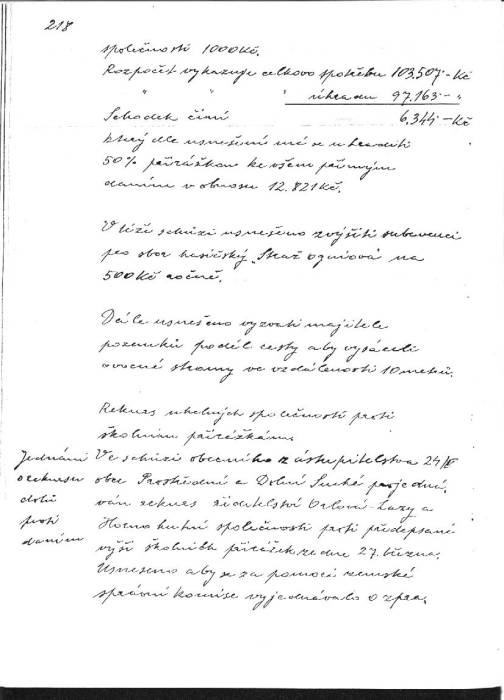 218
společností 1000Kč.
Rozpočet vykazuje celkovo spotřebu 103.507·- Kč
" " " úhradu 97.163·- "
Schodek činí 6.344·- Kč
který dle usnešení má se uhraditi
50% přirážkou ke všem přímým
daním v obnosu 12.821 Kč.
V téži schůzi usnešeno zvýšiti subvenci
pro sbor hasičský „Straž ogniová" na
500 Kč ročně.
Dále usnešeno vyzvati majitele
pozemků podél cesty aby vysázeli
ovocné stromy ve vzdálenosti 10 metrů.
Rekurs uhelných společností proti
školním přirážkám.
Jednání
o rekursu
dolů
proti
daním
Ve schůzi obecního zastupitelstva 24/IV
obce Prostřední a Dolní Suché projedná-
ván rekurs ředitelství Orlová-Lazy a
Horno hutní společnosti proti předepsané
výši školních přirážek ze dne 27. března.
Usnešeno aby se za pomoci zemské
správní komise vyjednávalo o zpra-